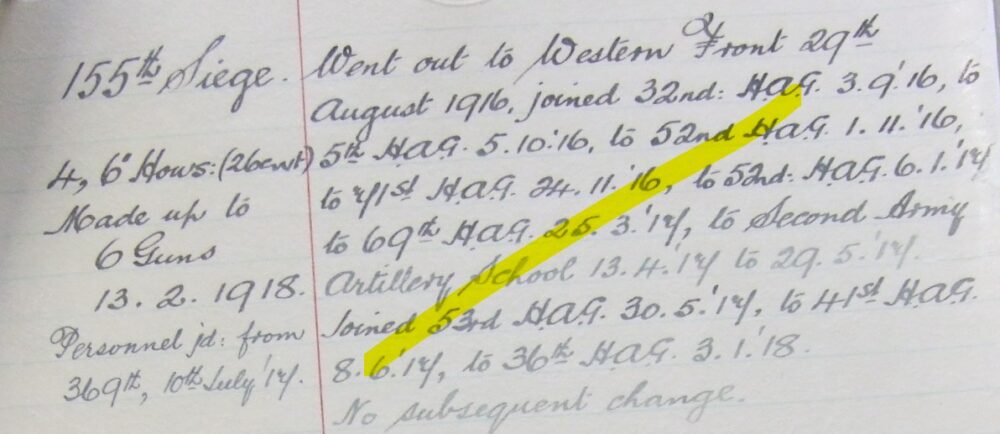 155th Siege.
4, 6" Hows: (26cwt)
Made up to
6 Guns
13.2.1918.
Personnel jd: from
369th, 10th July '17.
Went out to Western Front 29th
August 1916, joined 32nd: H.A.G. 3.9.'16, to
5th H.A.G. 5.10.'16, to 52nd H.A.G. 1.11.'16,
to 71st H.A.G. 24.11.'16, to 52nd: H.A.G. 6.1.'17
to 69th H.A.G. 25.3.'17, to Second Army
Artillery School 13.4.'17 to 29.5.'17.
Joined 53rd H.A.G. 30.5.'17, to 41st H.A.G.
8.6.'17, to 36th H.A.G. 3.1.'18.
No subsequent change.